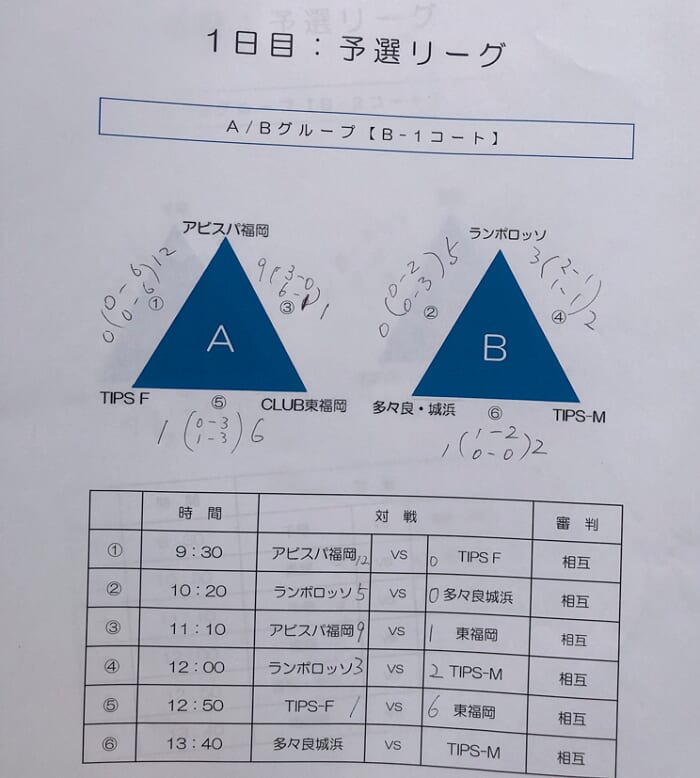 1日目：予選リーグ
A/Bグループ【B-1コート】
アビスパ福岡
ランポロッソ
0(0-6 0-6)12
①
9(3-0 6-1)1
③
0(0-2 0-3)5
②
3(2-1 1-1)2
④
A
B
TIPS F
⑤
CLUB東福岡
多々良・城浜
⑥
TIPS-M
1(0-3 1-3)6
1(1-2 0-0)2
時 間 対 戦 審 判
① 9：30 アビスパ福岡 12 VS 0 TIPS F 相互
② 10：20 ランポロッソ 5 VS 0 多々良城浜 相互
③ 11：10 アビスパ福岡 9 VS 1 東福岡 相互
④ 12：00 ランポロッソ 3 VS 2 TIPS-M 相互
⑤ 12：50 TIPS-F 1 VS 6 東福岡 相互
⑥ 13：40 多々良城浜 VS TIPS-M 相互